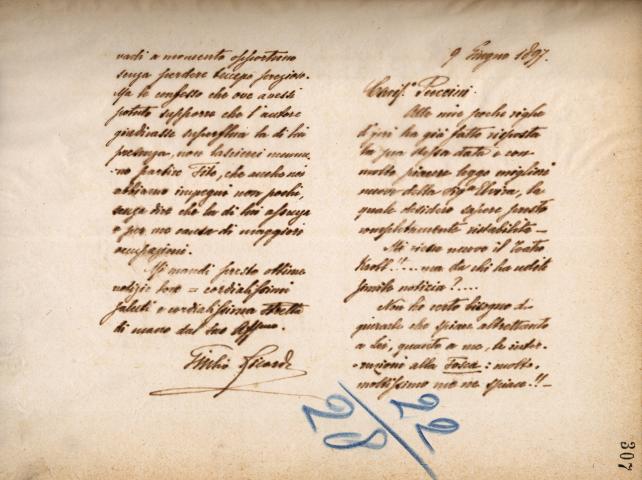 9 Giugno 1897.
Cariss.º Puccini.
Alle mie poche righe
d'jeri ha già fatto risposta
la sua stessa data e con
molto piacere leggo migliori
nuove della Sig.ra Elvira, la
quale desidero sapere presto
completamente ristabilita —
Mi riesce nuovo il Teatro
Kroll!!... ma da chi ha udito
simile notizia?....
Non ho certo bisogno di
giurarle che spiace altrettanto
a Lei, quanto a me, le inter-
-ruzioni alla Tosca: molto,
moltissimo me ne spiace!!—
vadi a momento opportuno
senza perdere tempo prezioso.
Ma le confesso che ove avessi
potuto supporre che l'autore
giudicasse superflua la di lui
presenza, non lascierei
partire Tito, che anche noi
abbiamo impegni non pochi,
senza dire che la di lui assenza
è per me causa di maggiori
occupazioni.
Mi mandi presto ottime
notizie sue = cordialissimi
saluti e cordialissima stretta
di mano dal suo Affmo.
Giulio Ricordi
28/22
307